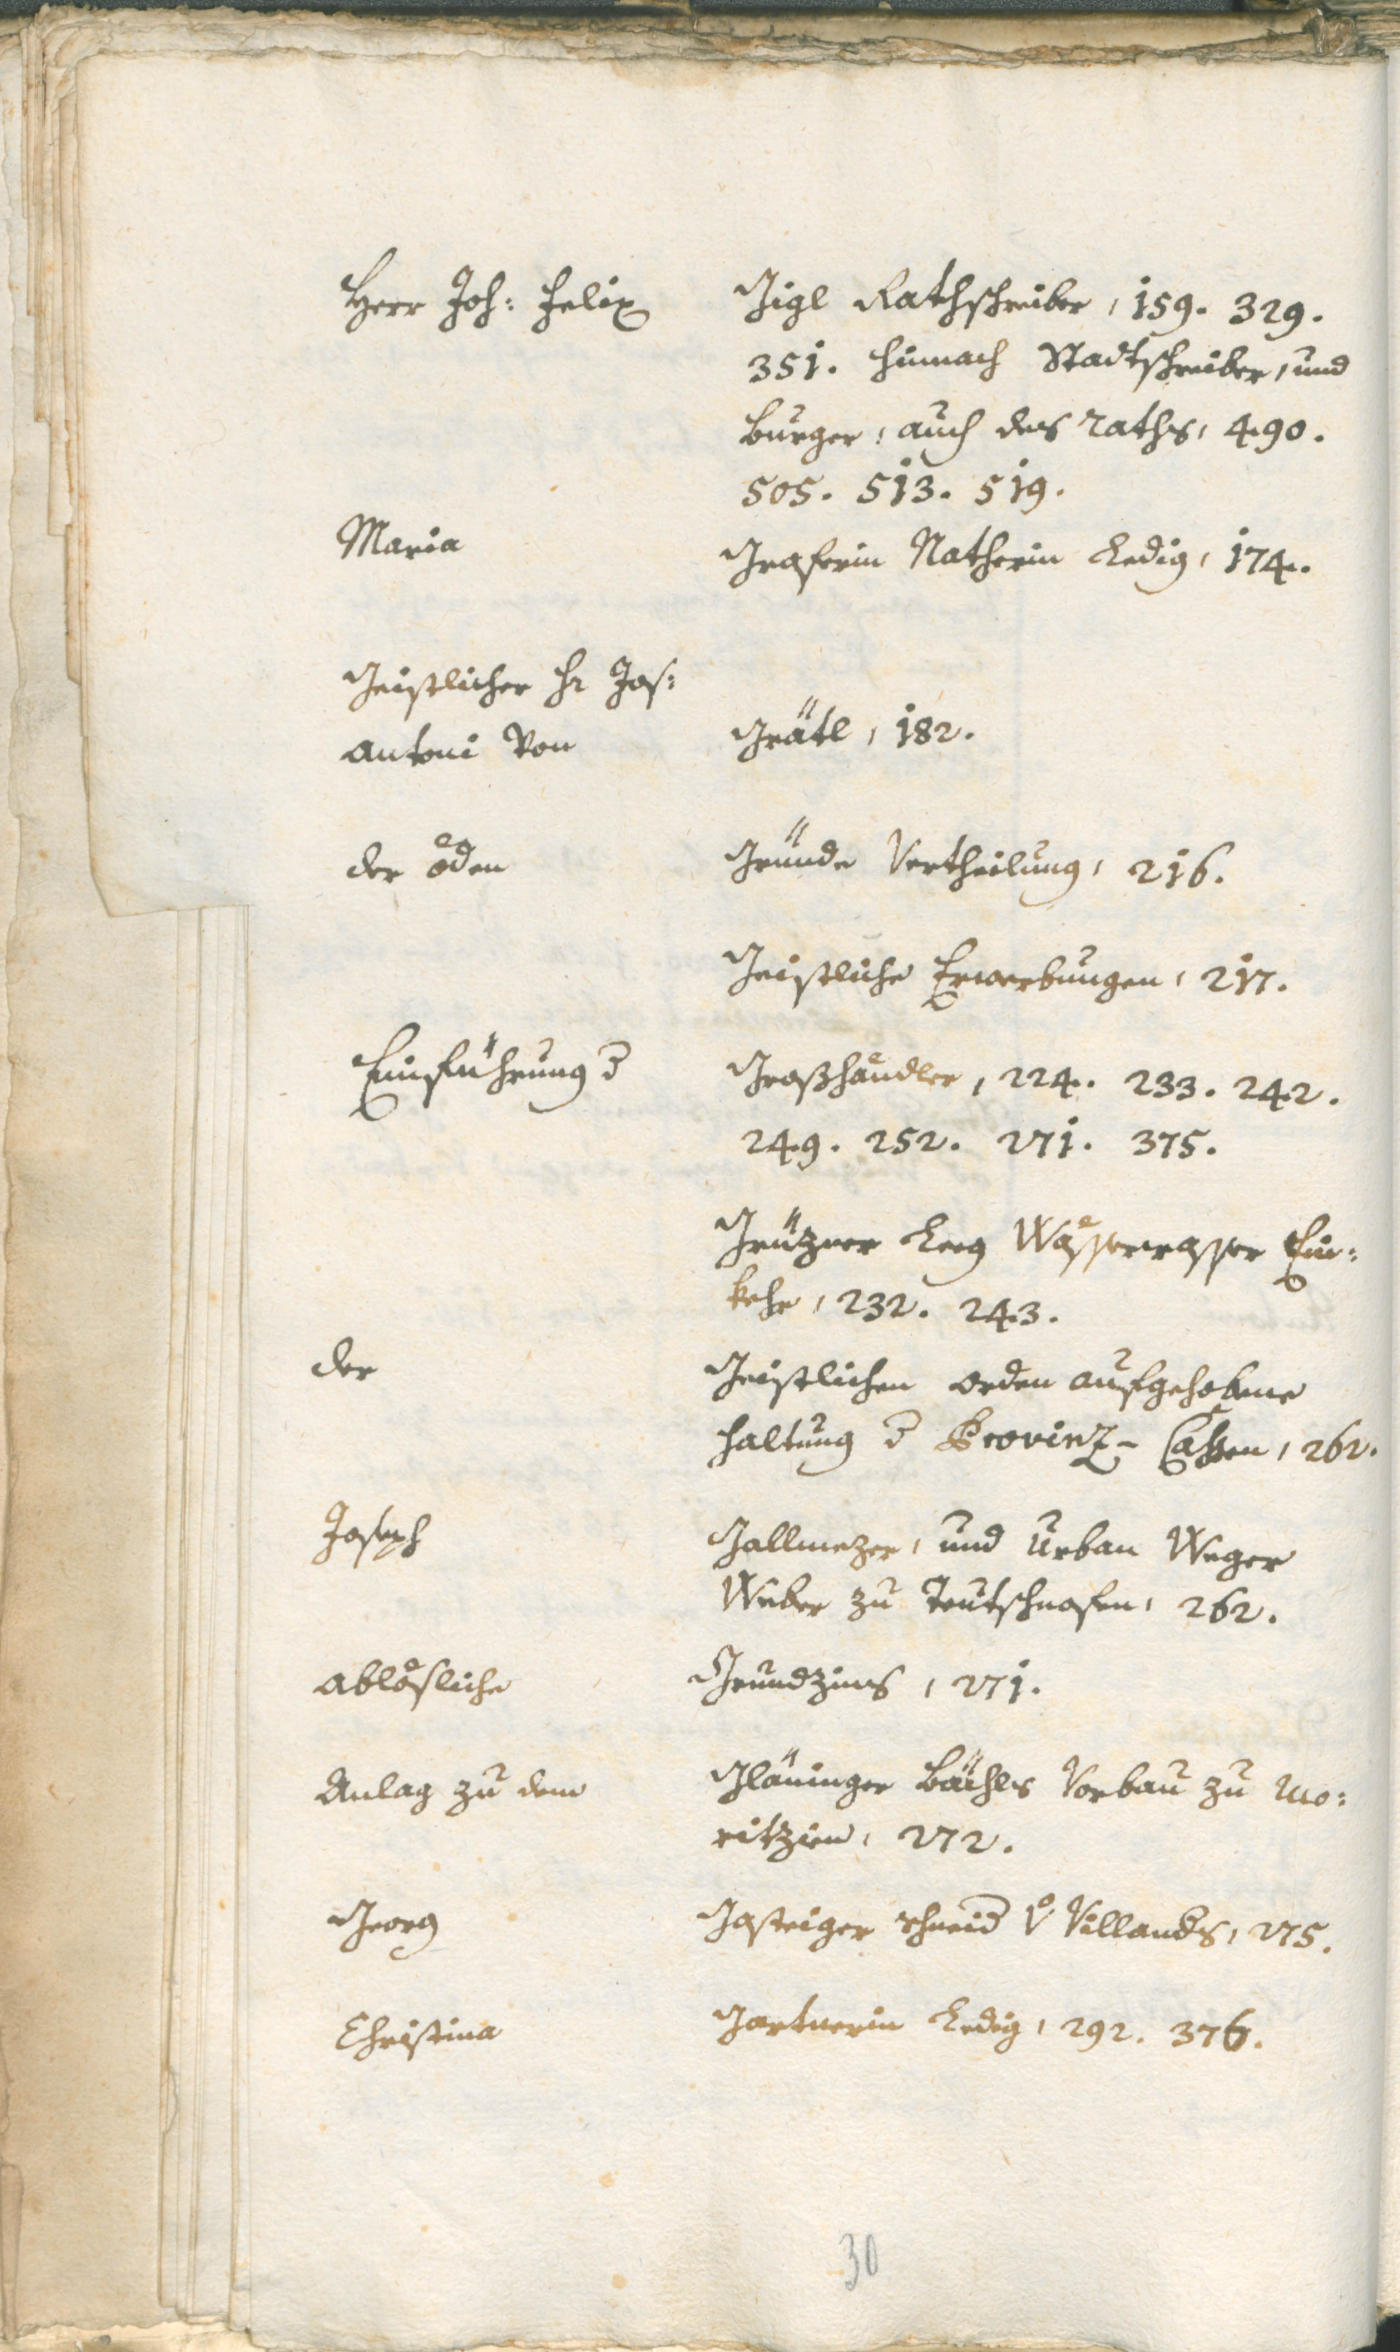 Herr Joh: Felix Gigl Rathschreiber, 159. 329.
351. hinnach Stadtschreiber, und
burger, auch des raths, 490.
505. 513. 519.
Maria Graserin Natherin ledig, 174.
Geistlicher Hr Jos:
Antoni von Grätl, 182.
der öden Gründe Vertheilung, 216.
Geistliche Erwerbungen, 217.
Einführung d Großhändler, 224. 233. 242.
249. 252. 271. 375.
Grützner Wasser Ein:
kehr, 232. 243.
der Geistlichen orden aufgehobene
haltung d Provinz-Cassen, 262.
Joseph Gallmezer, und Urban Weger
Weber zu Teutschnofen, 262.
ablösliche Grundzins, 271.
Anlag zu dem Gläninger bächls Vorbau zu Mo:
ritzien, 272.
Georg Gasteiger schneid v Villanders, 275.
Christina Gartnerin ledig, 292. 376.
30